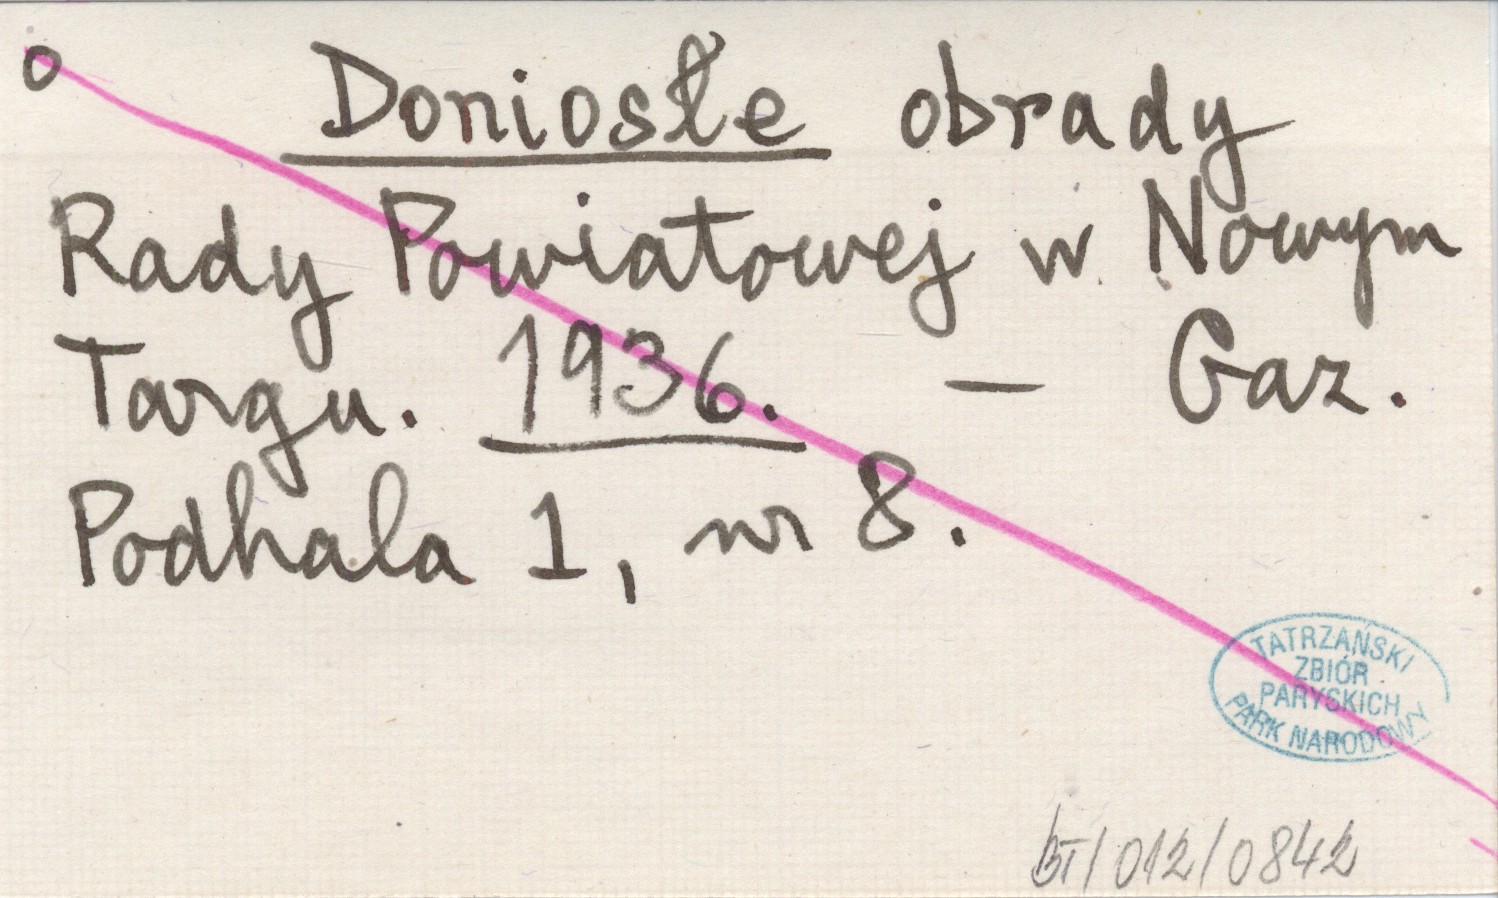 o Doniosłe obrady
Rady Powiatowej w Nowym
Targu. 1936. — Gaz.
Podhala 1, nr 8.
TATRZAŃSKI
ZBIÓR
PARYSKICH
PARK NARODOWY
BT/012/0842